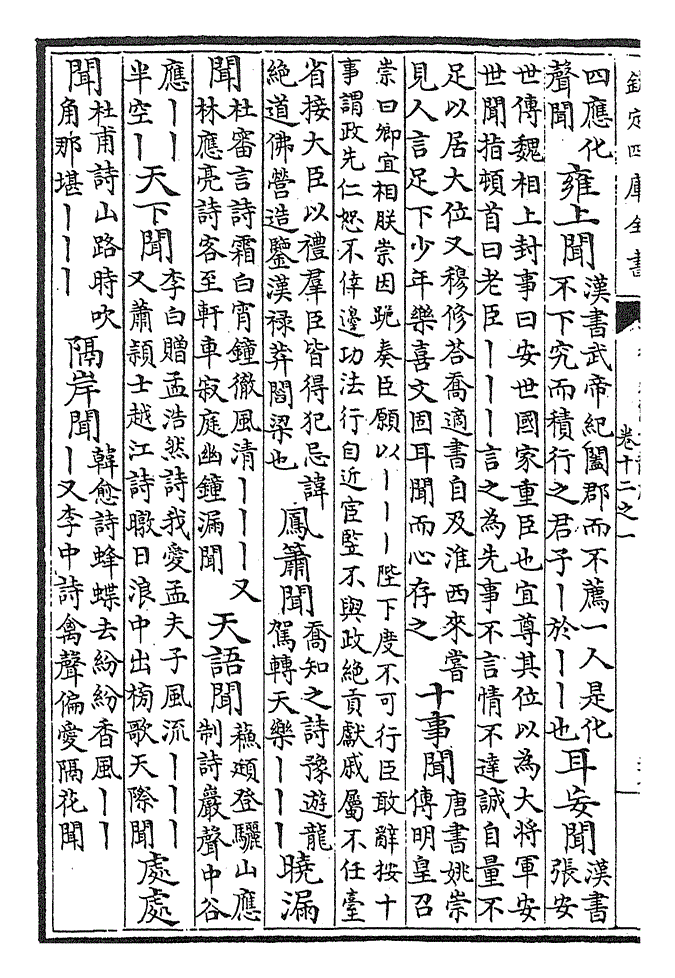 欽定四庫全書
卷十二之一
四應化
聲聞
雍上聞
漢書武帝紀闔郡而不薦一人是化
不下究而積行之君子丨於丨丨也
耳妄聞
漢書
張安
世傳魏相上封事曰安世國家重臣也宜尊其位以為大將軍安
世聞指頓首曰老臣丨丨丨言之為先事不言情不達誠自量不
足以居大位又穆修答喬適書自及淮西來嘗
見人言足下少年樂喜文固耳聞而心存之
十事聞
唐書姚崇
傳明皇召
崇曰卿宜相朕崇因跪奏臣願以丨丨丨陛下度不可行臣敢辭按十
事謂政先仁恕不倖邊功法行自近宦豎不與政絶貢獻戚屬不任臺
省接大臣以禮羣臣皆得犯忌諱
絶道佛營造鑒漢祿莽閻梁也
鳳簫聞
喬知之詩豫遊龍
駕轉天樂丨丨丨
曉漏
聞
杜審言詩霜白宵鐘徹風清丨丨丨又
林應亮詩客至軒車寂庭幽鐘漏聞
天語聞
蘇頲登驪山應
制詩巖聲中谷
應丨丨
半空丨
天下聞
李白贈孟浩然詩我愛孟夫子風流丨丨丨
又蕭潁士越江詩暾日浪中出榜歌天際聞
處處
聞
杜甫詩山路時吹
角那堪丨丨丨
隔岸聞
韓愈詩蜂蝶去紛紛香風丨丨
丨又李中詩禽聲偏愛隔花聞